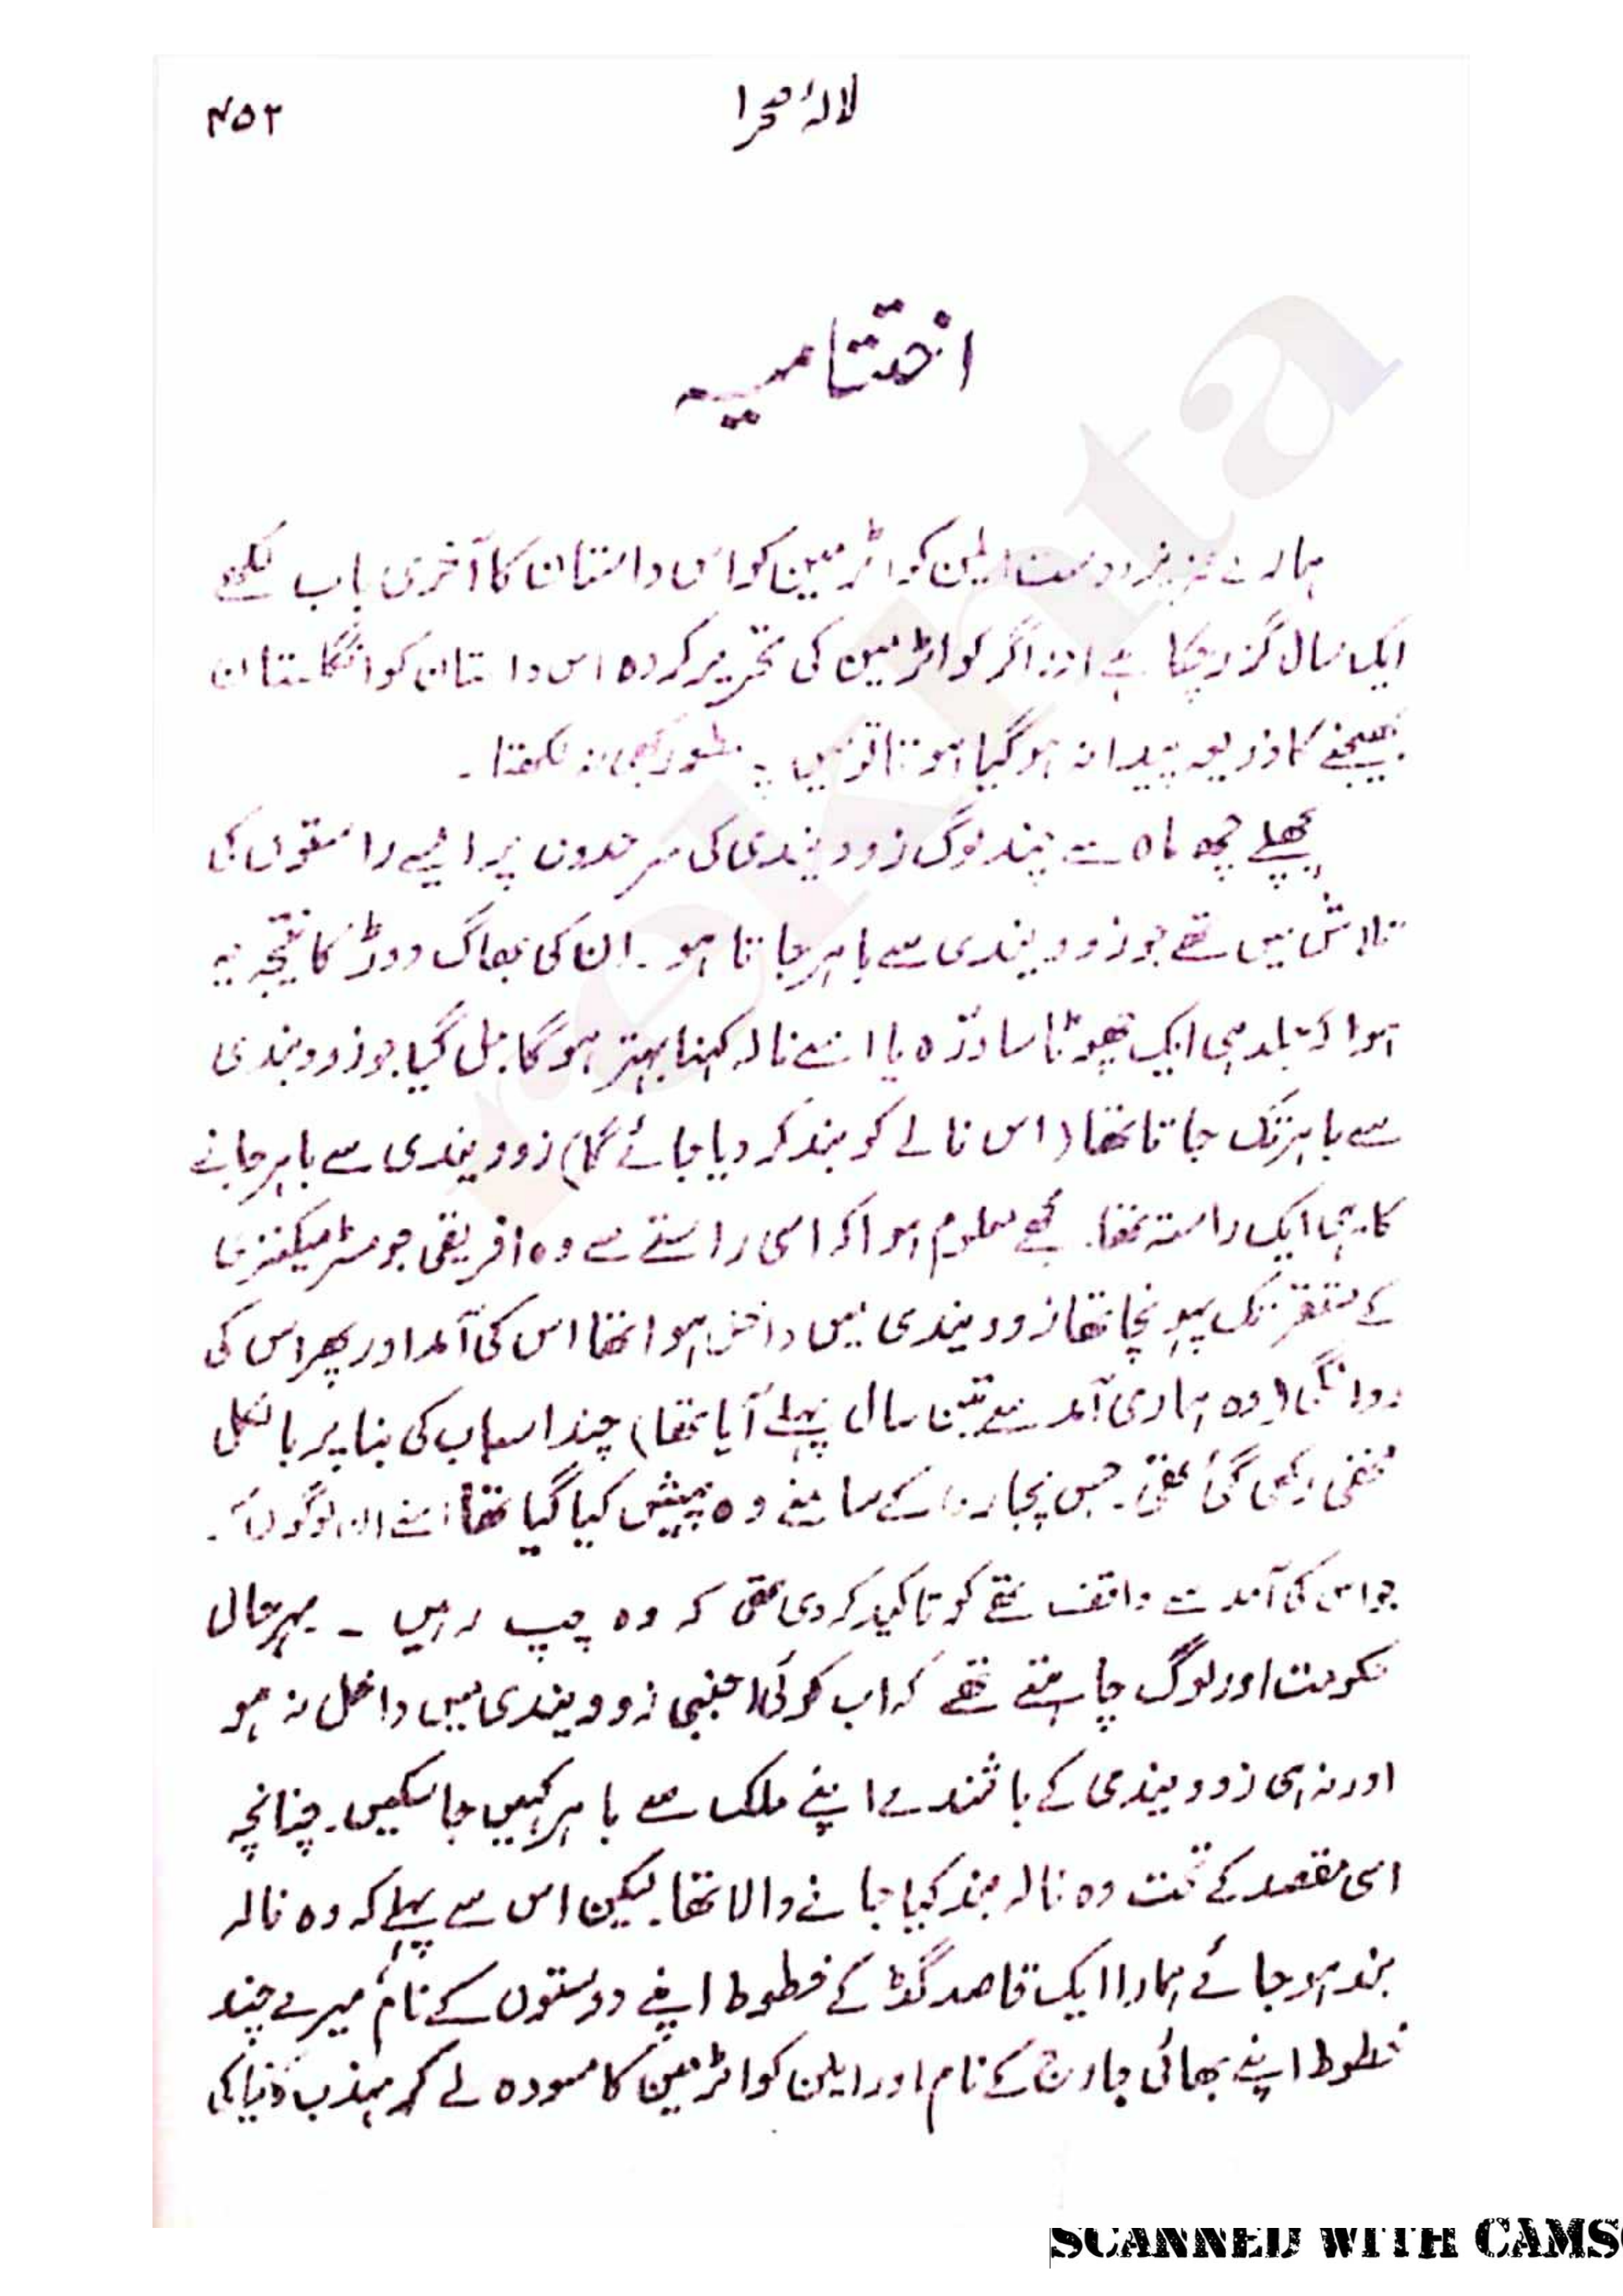 لالۂ صحرا ۴۵۲
اختتامیہ
ہمارے عزیز دوست ایلن کواٹرمین کو اس داستان کا آخری باب لکھے
ایک سال گزر چکا ہے اور اگر کواٹرمین کی تحریر کردہ اس داستان کو انگلستان
بھیجنے کا ذریعہ پیدا نہ ہو گیا ہوتا تو میں یہ سطور کبھی نہ لکھتا ۔
پچھلے چھ ماہ سے چند لوگ زوویندی کی سرحدوں پر ایسے راستوں کی
تلاش میں تھے جو زوویندی سے باہر جاتا ہو ۔ ان کی بھاگ دوڑ کا نتیجہ یہ
ہوا کہ جلد ہی ایک چھوٹا سا درّہ یا اسے نالہ کہنا بہتر ہوگا مل گیا جو زوویندی
سے باہر تک جاتا تھا (اس نالے کو بند کر دیا جائے گا) زوویندی سے باہر جانے
کا یہی ایک راستہ تھا۔ مجھے معلوم ہوا کہ اسی راستے سے وہ افریقی جو مسٹر میکنزی
کے مستقر تک پہونچا تھا زوویندی میں داخل ہوا تھا اس کی آمد اور پھر اس کی
روانگی (وہ ہماری آمد سے تین سال پہلے آیا تھا) چند اسباب کی بنا پر بالکل
مخفی رکھی گئی تھی۔ جس پجارن کے سامنے وہ پیش کیا گیا تھا اسنے ان لوگوں کو
جو اس کی آمد سے واقف تھے کو تاکید کر دی تھی کہ وہ چپ رہیں ۔ بہرحال
حکومت اور لوگ چاہتے تھے کہ اب کوئی اجنبی زوویندی میں داخل نہ ہو
اور نہ ہی زوویندی کے باشندے اپنے ملک سے باہر کہیں جا سکیں۔ چنانچہ
اسی مقصد کے تحت وہ نالہ بند کیا جانے والا تھا۔ لیکن اس سے پہلے کہ وہ نالہ
بند ہو جائے ہمارا ایک قاصد گڈ کے خطوط اپنے دوستوں کے نام میرے چند
خطوط اپنے بھائی جارج کے نام اور ایلن کواٹرمین کا مسودہ لے کر مہذب دنیا کی
rekhta
SCANNED WITH CAMS